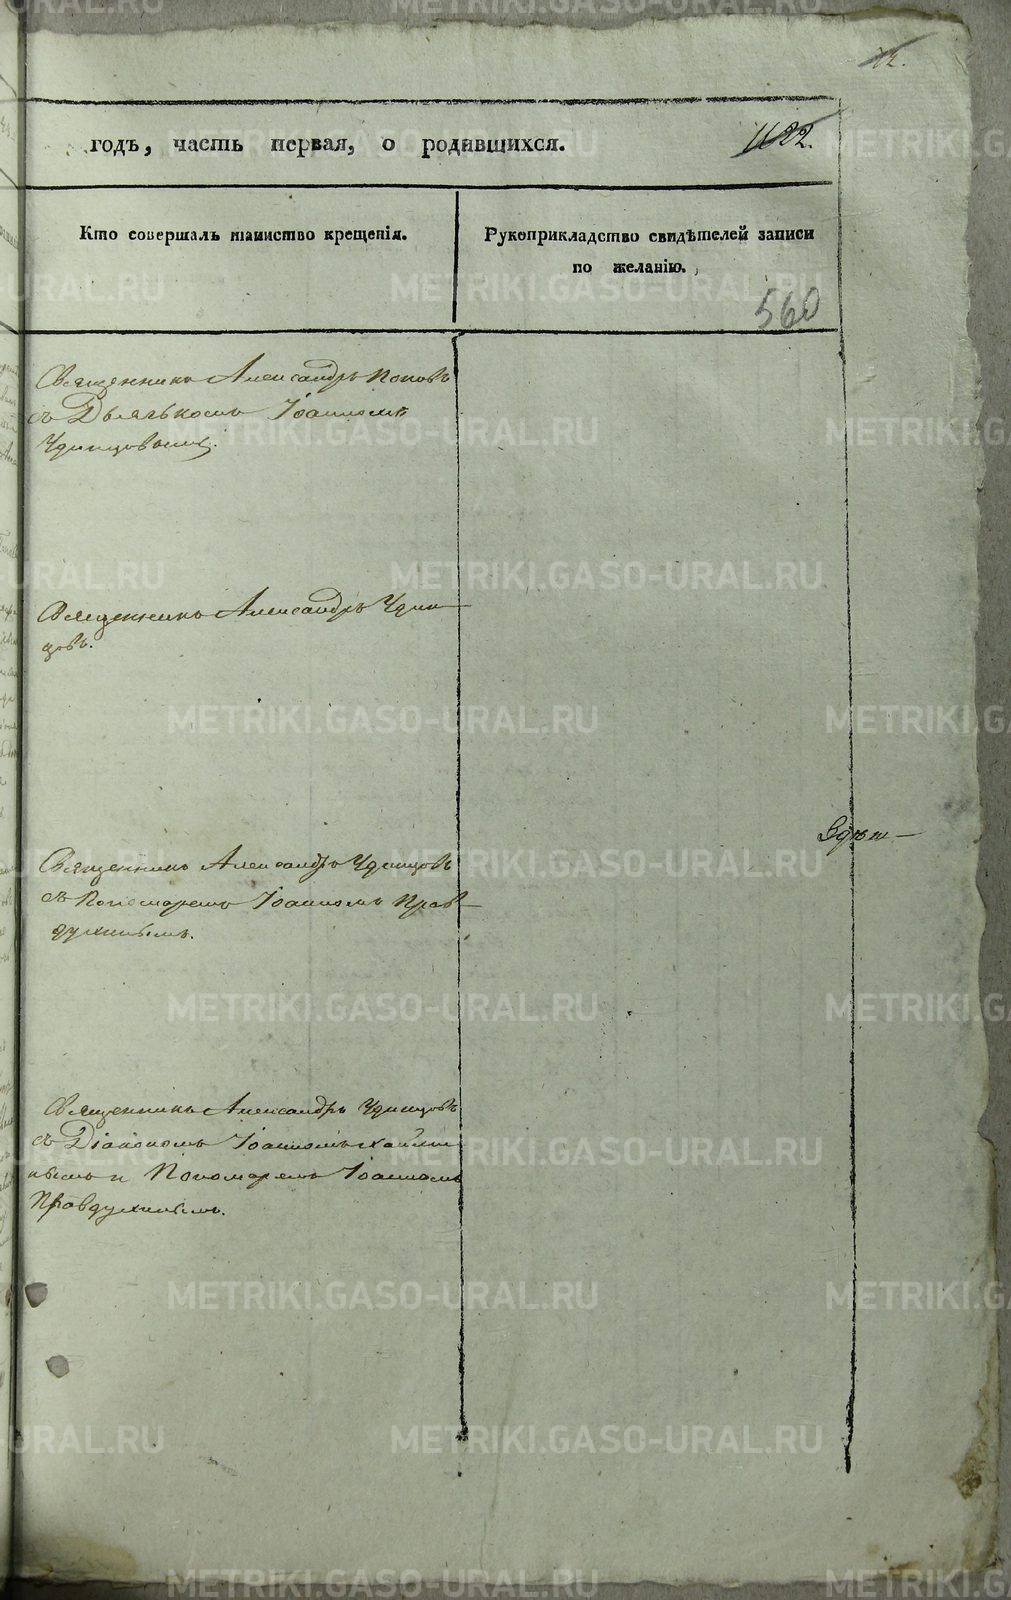 72.
годъ, часть первая, о родившихся.
1122.
Кто совершалъ таинство крещенія.
Рукоприкладство свидѣтелей записи
по желанію.
560
Священникъ Александръ Поповъ
съ Дьячькомъ Іоанномъ
Удинцовымъ.
Священникъ Александръ Удин-
цовъ.
Священникъ Александръ Удинцовъ
съ Пономаремъ Іоанномъ Прав-
духинымъ.
Священникъ Александръ Удинцовъ
съ Діакономъ Іоанномъ
нымъ и Пономаремъ Іоанномъ
Правдухинымъ.
METRIKI.GASO-URAL.RU